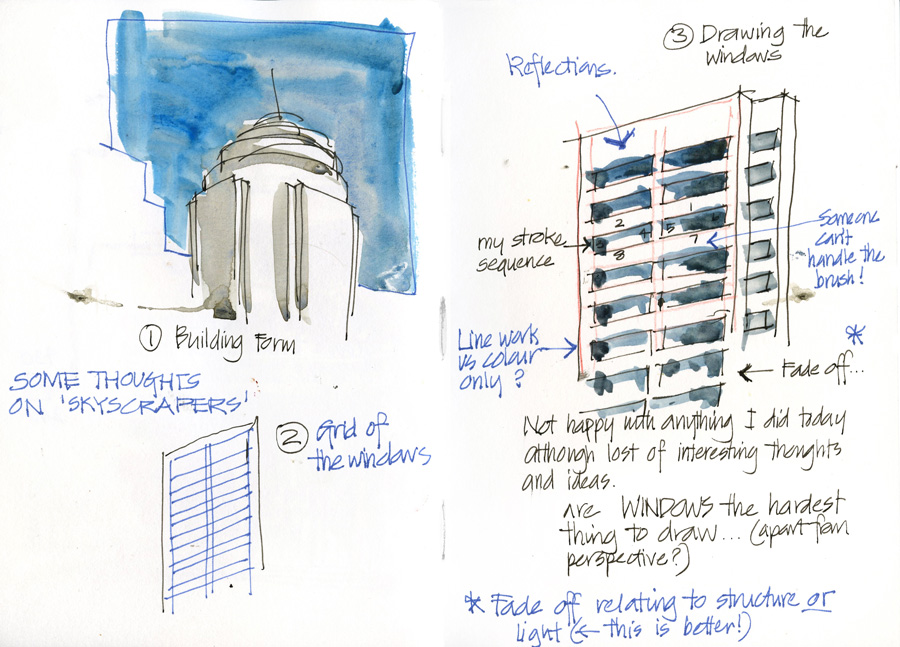 ① Building Form
SOME THOUGHTS
ON 'SKYSCRAPERS'
② Grid of
the windows
③ Drawing the
windows
Reflections.
1
2
3
4
5
6
7
8
my stroke
sequence
Someone
can't
handle the
brush!
Line work
vs colour
only?
*
Fade off...
Not happy with anything I did today
although lost of interesting thoughts
and ideas.
Are WINDOWS the hardest
thing to draw... (apart from
perspective?)
* Fade off relating to structure or
light (← this is better!)